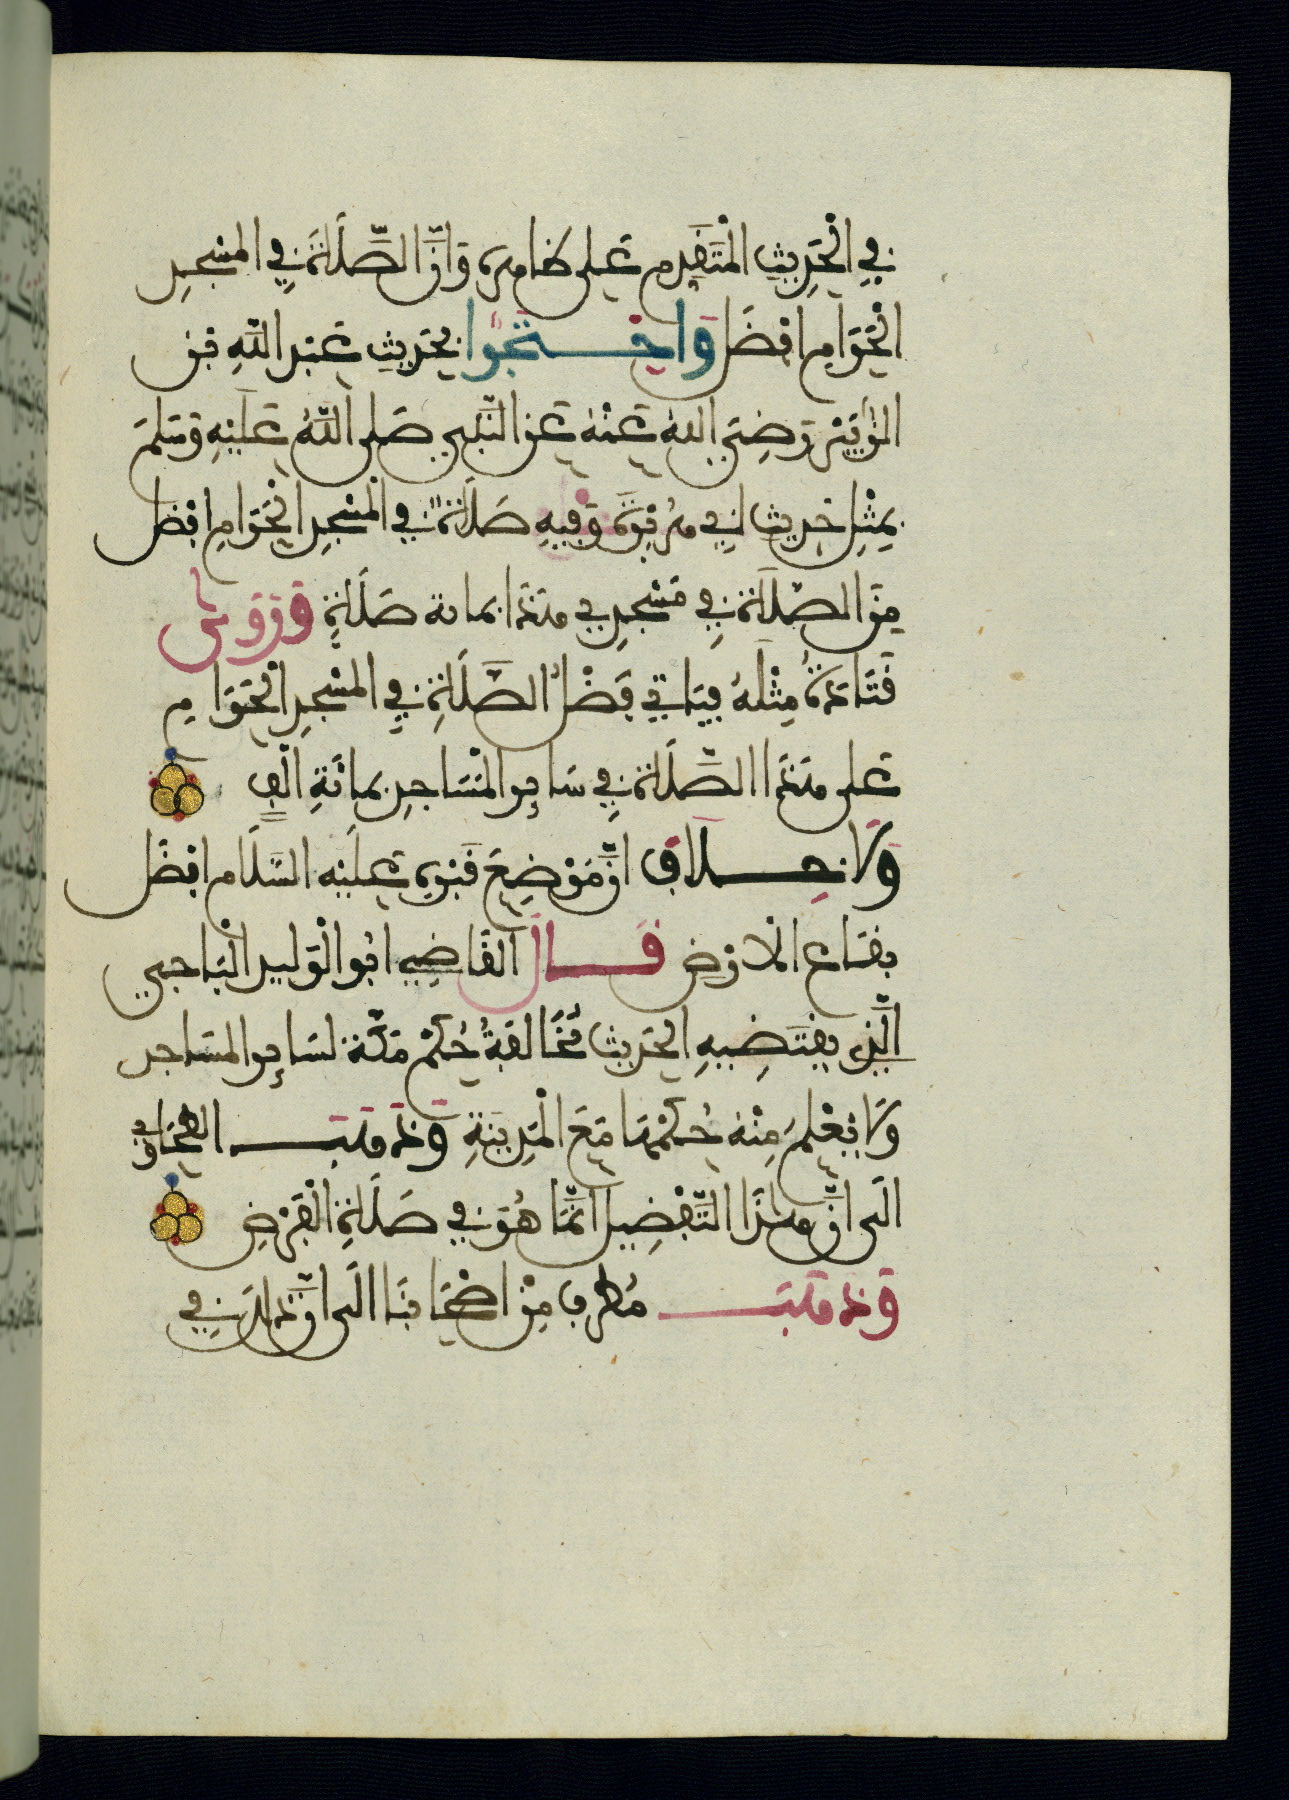 في الحديث المتقدم على ظاهره وان الصلاة في المسجد
الحرام افضل واحتجوا بحديث عبد الله بن
الزبير رضي الله عنه عن النبي صلى الله عليه وسلم
بمثل حديث ابي هريرة وفيه صلاة في المسجد الحرام افضل
من الصلاة في مسجدي هذا بماية صلاة وروى
قتادة مثله فياتي فضل الصلاة في المسجد الحرام
على هذا الصلاة في ساير المساجد بمائة الف
ولا خلاف ان موضع قبره عليه السلام افضل
بقاع الارض قال القاضي ابو الوليد الباجي
الذي يقتضيه الحديث مخالفة حكم مكة لساير المساجد
ولا يعلم منه حكمها مع المدينة وذهب الطحاوي
الى ان هذا التفضيل انما هو في صلاة الفرض
وذهب مطرف من اصحابنا الى ان ذلك في